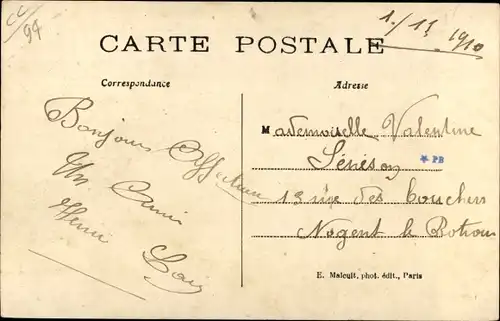 1./11 1910
CARTE POSTALE
Correspondance
Adresse
Bonjour Affectueux
Un Ami
Henri
Mademoiselle Valentine
* PB
13 rue des bouchers
Nogent le Rotrou
E. Malcuit, phot. édit., Paris